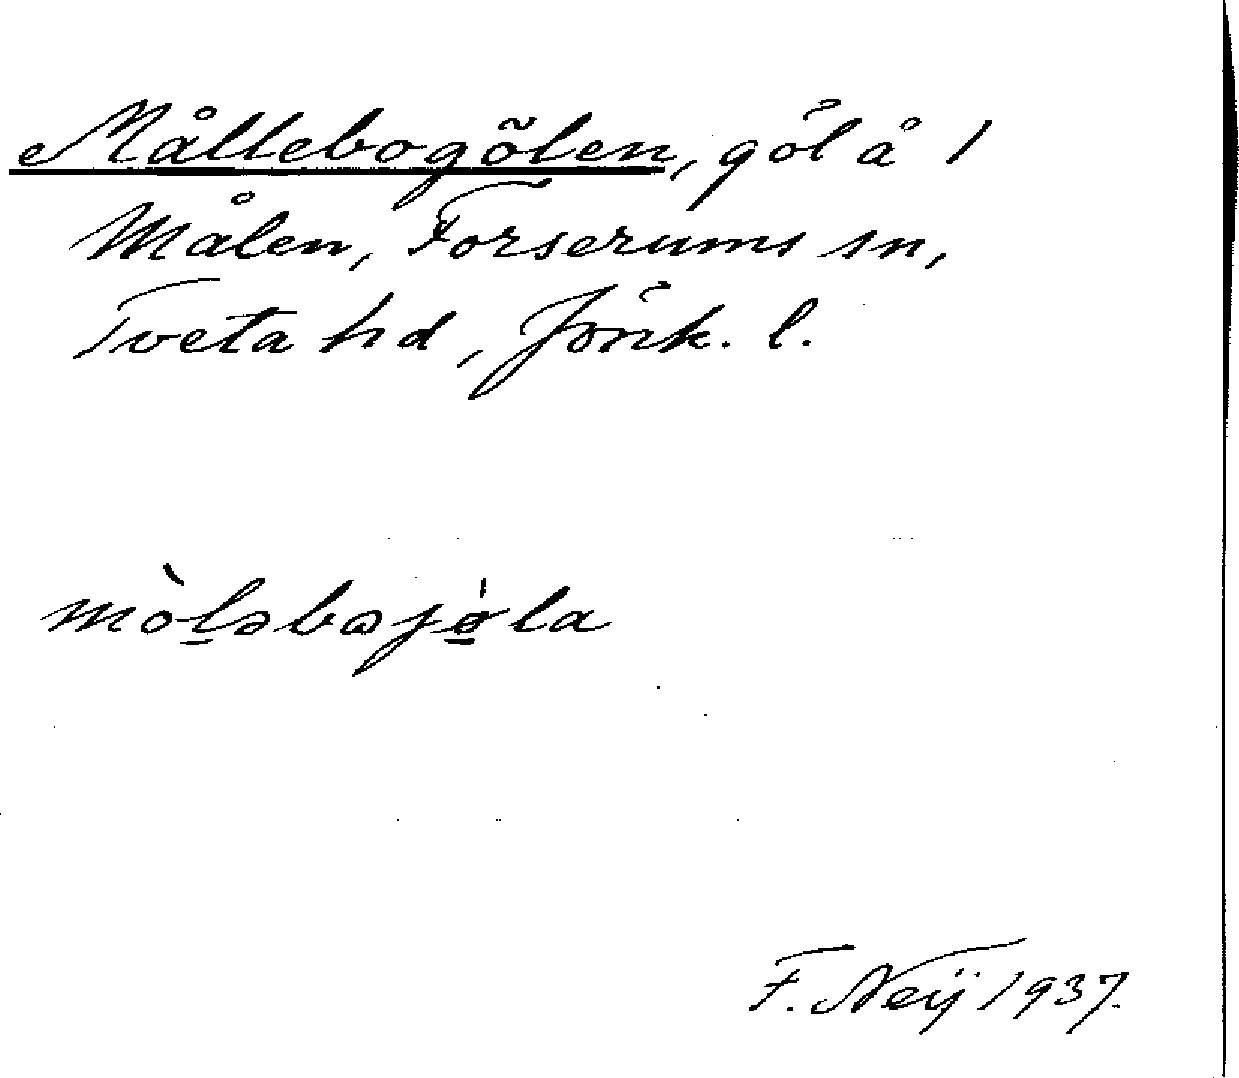 Mållebogölen, göl å 1
Målen, Forserums sn,
Tveta hd, Jönk. l.
F. Neij 1937.